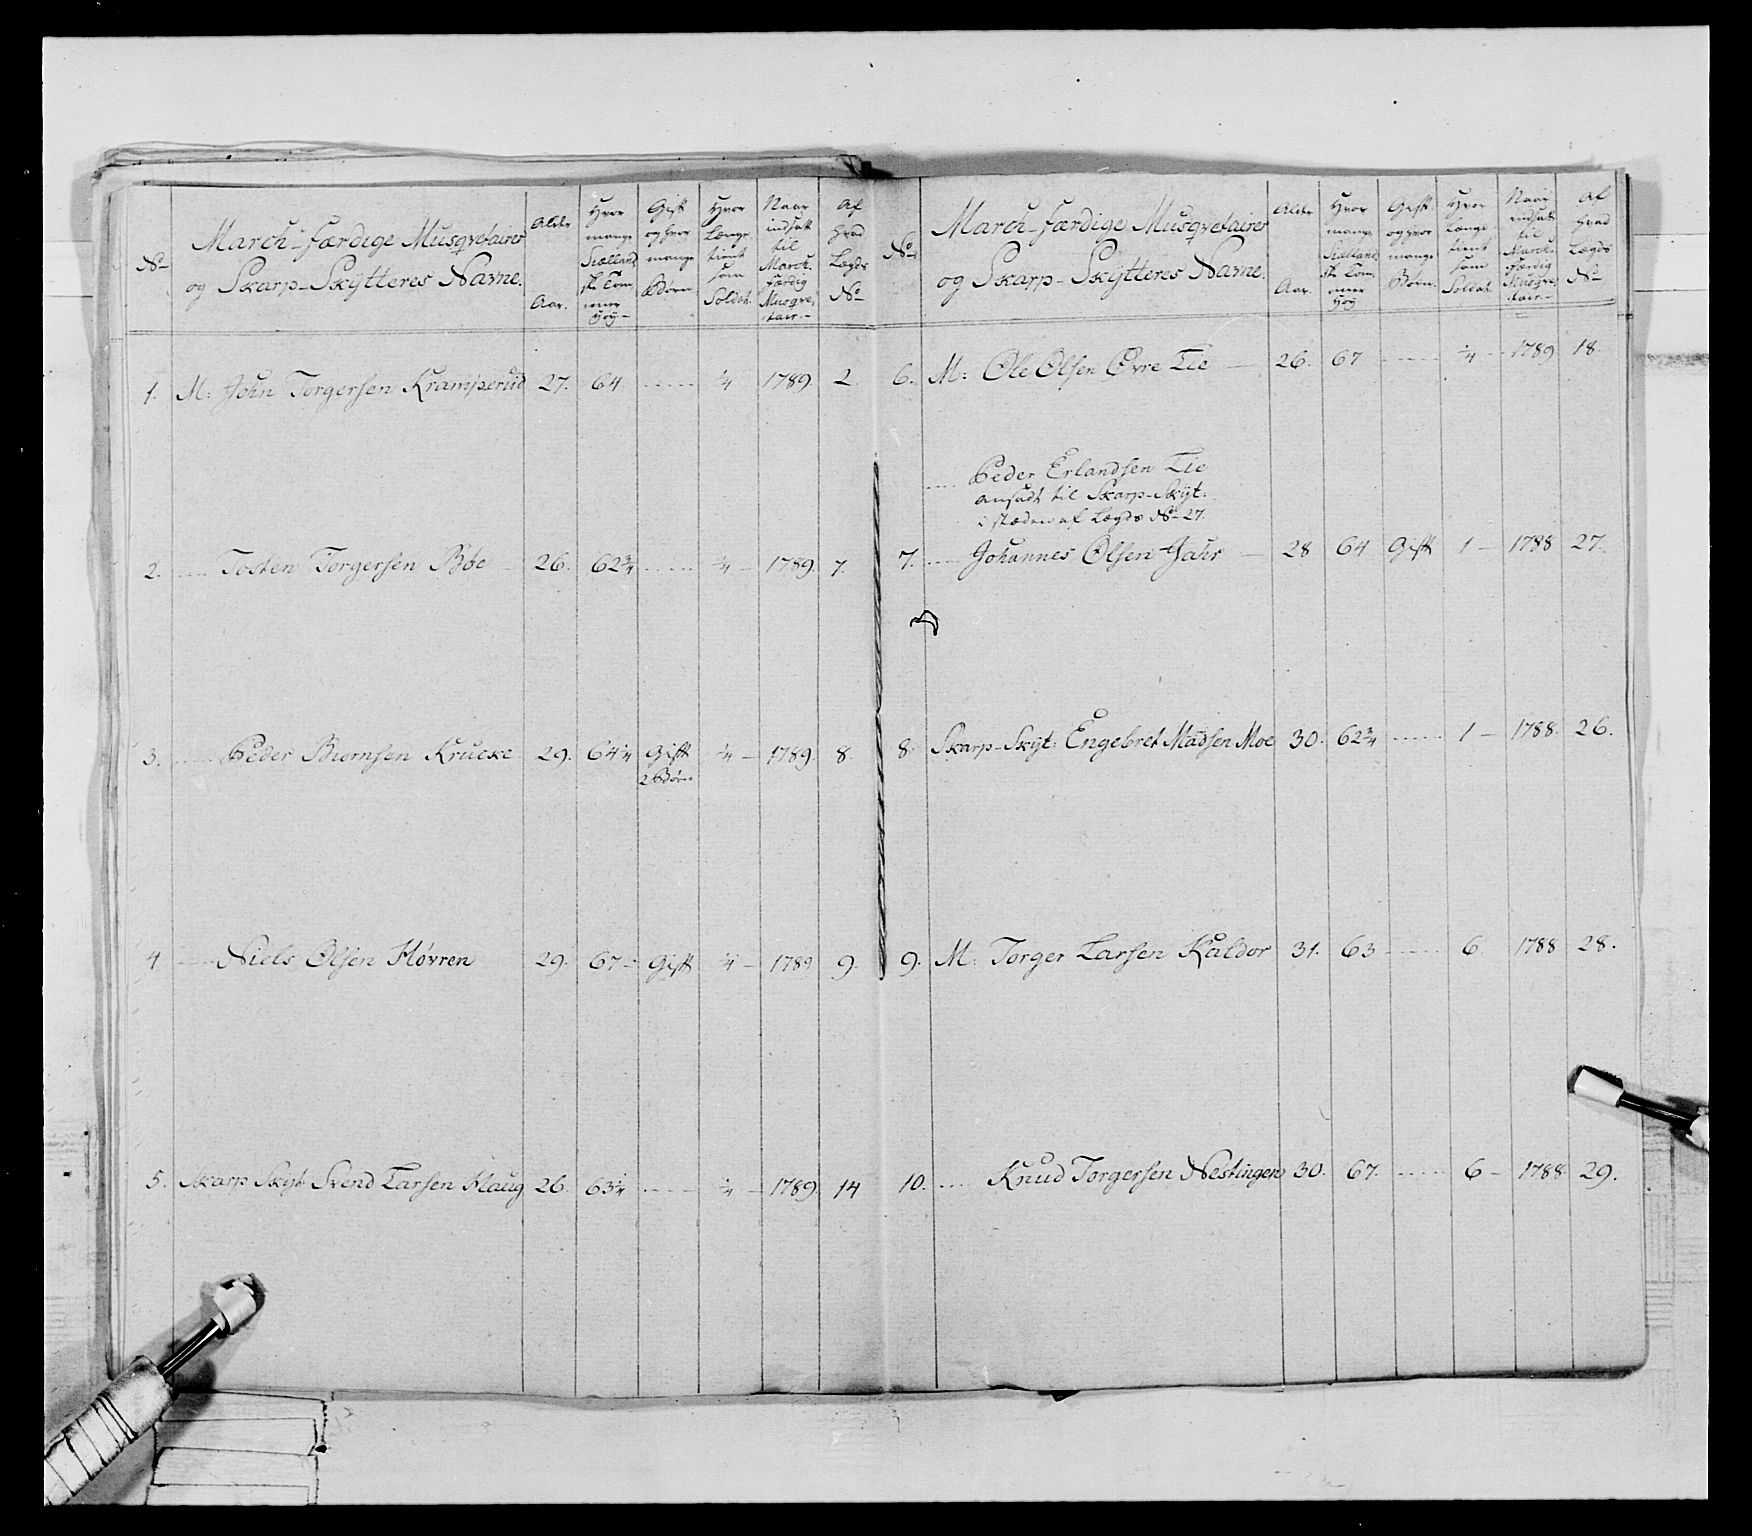 No
March-færdige Musqvetairer
og Skarp-Skÿtteres Navne.
Alder
Aar.
Hvor
mange
Siælland,
sk. Tom,
mer
høÿ
Gift
og hvor
mange
Børn.
Hvor
længe
tient
som
Soldat.
Naar
indsatt
til
March,
færdig
Musqve,
tair.
Af
hvad
Lægds
No
1. M: John Torgersen Kramperud 27. 64 1/4 1789. 2
2. Tosten Torgersen Bøe 26. 62 3/4 1/4 1789. 7.
3. Peder Biørnsen Kruexe 29. 64 1/4 Gift 1/4 1789. 8.
2 Børn
4 Niels Olsen Høvren 29. 67 Gift 1/4 1789 9.
5. Skarp Skÿt Svend Larsen Haug 26. 63 1/4 1/4 1789. 14
No
March-færdige Musqvetairer
og Skarp-Skÿtteres Navne.
Alder
Aar.
Hvor
mange
Siælland,
sk. Tom,
mer
høÿ
Gift
og hvor
mange
Børn.
Hvor
længe
tient
som
Soldat.
Naar
indsatt
til
March,
færdig
Musqve,
tair.
Af
hvad
Lægds
No
6. M: Ole Olsen Øvre Lie 26. 67 1/4 1789 18.
Peder Erlandsen Lie
ansadt til Skarp-Skÿt:
i stæden af Lægds No 27.
7. Johannes Olsen Jahr 28 64 Gift 1 1788 27.
8. Skarp-Skÿt: Engebret Madsen Moe 30. 62 3/4 1 1788. 26.
9. M: Torger Larsen Kaldor 31. 63 6 1788 28.
10. Knud Torgersen Nestingen 30. 67. 6 1788 29.